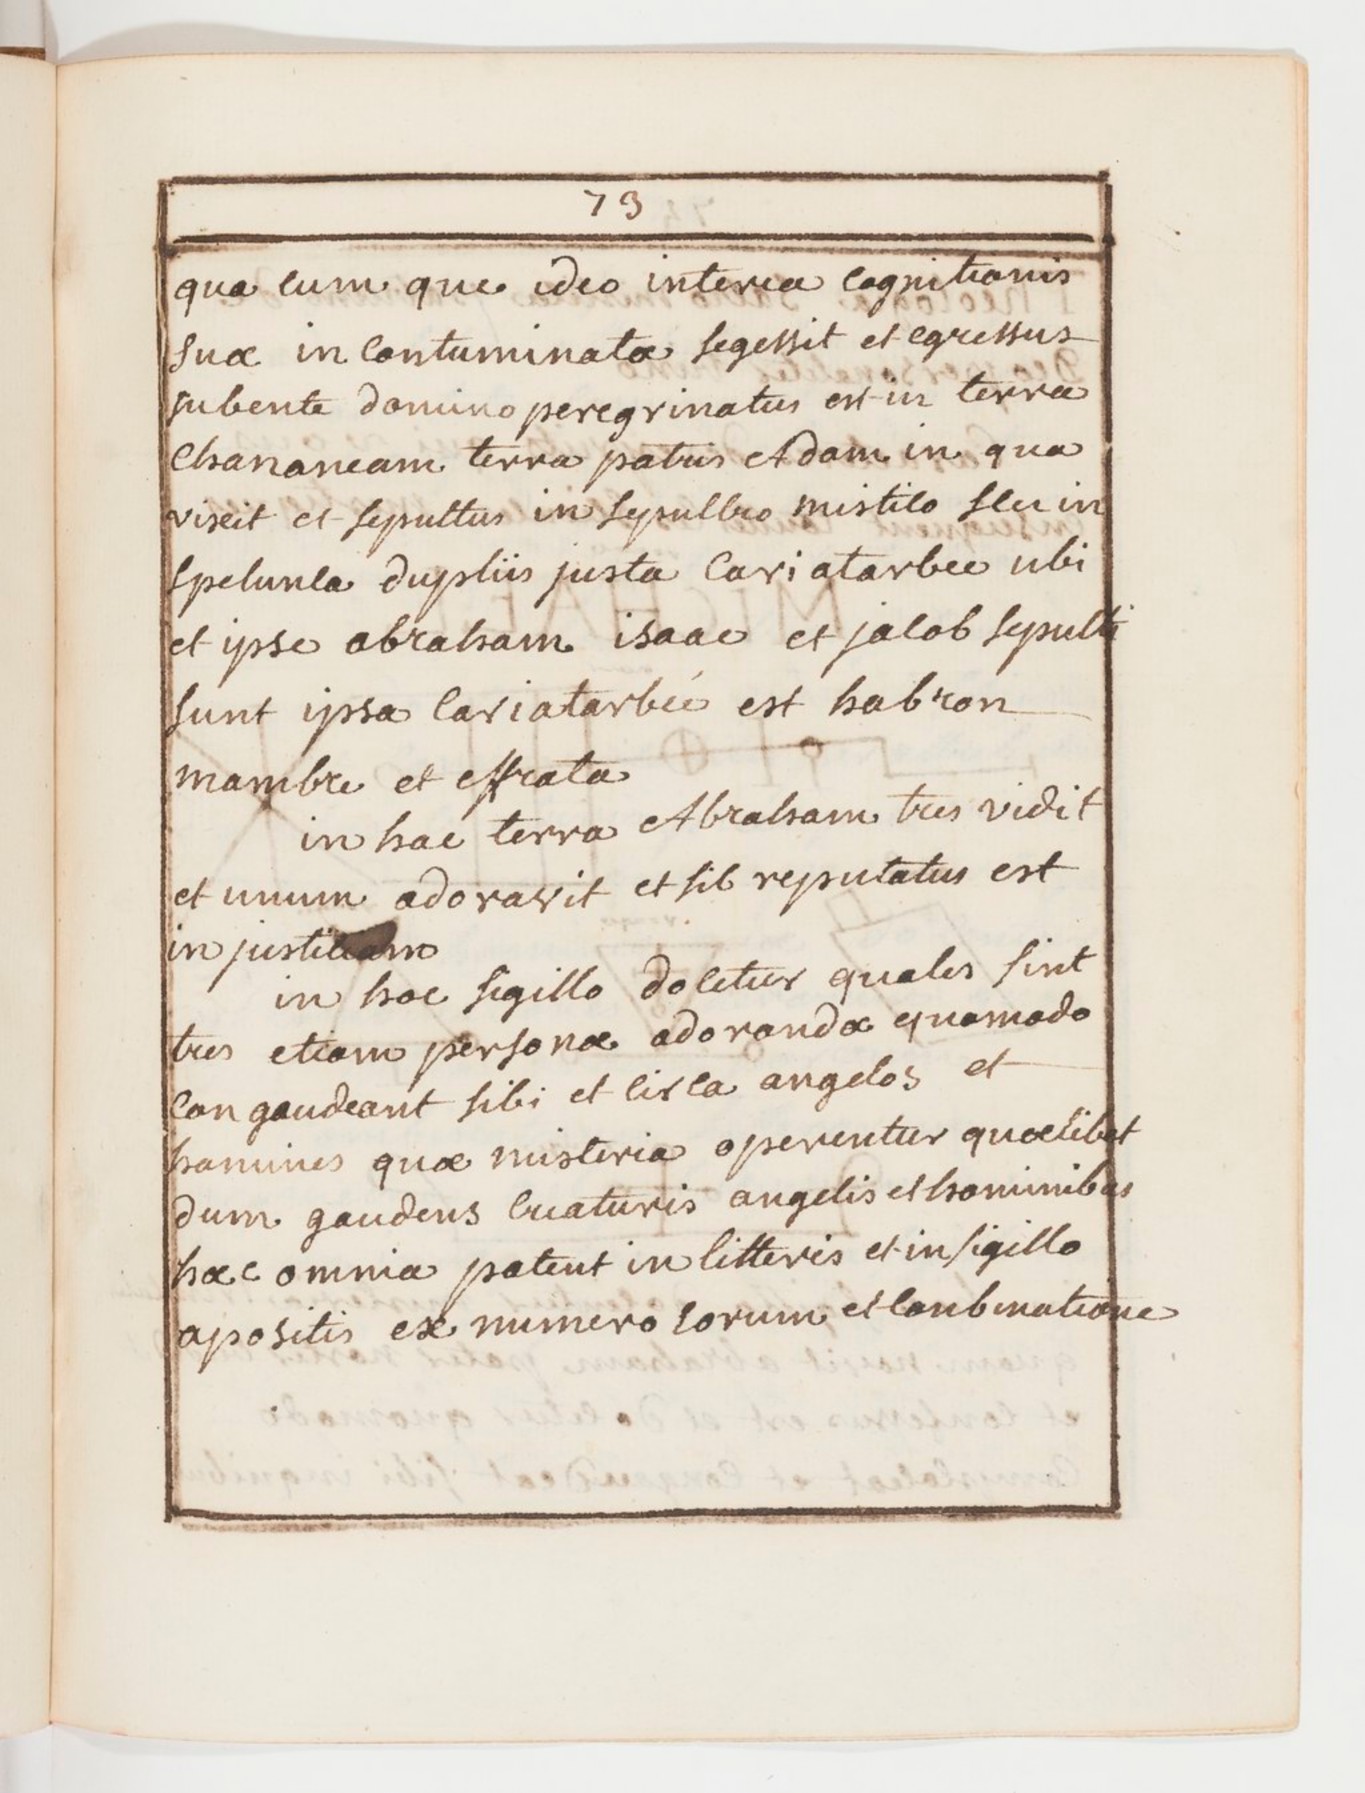 73
qua cum que ideo interea cognitionis
suæ in contuminatæ segessit et egressus
jubente domino peregrinatus est in terra
Chananeam terra patris Adam in qua
vixit et sepultus in sepulcro mistico seu in
spelunca dupliis justa Cariatarbee ubi
et ipse abraham isaac et jacob sepulti
sunt ipsa Cariatarbeé est habron
mambre et effrata
in hac terra Abraham tres vidit
et unum adoravit et sib reputatus est
in justiciam
in hoc sigillo docetur quales sint
tres etiam personæ adorandæ quomodo
Congaudeant sibi et circa angelos et
homines quæ misteria operentur quælibet
dum gaudens Creaturis angelis et hominibus
hæc omnia patent in litteris et in sigillo
apositis ex numero sorum et Conbinatione